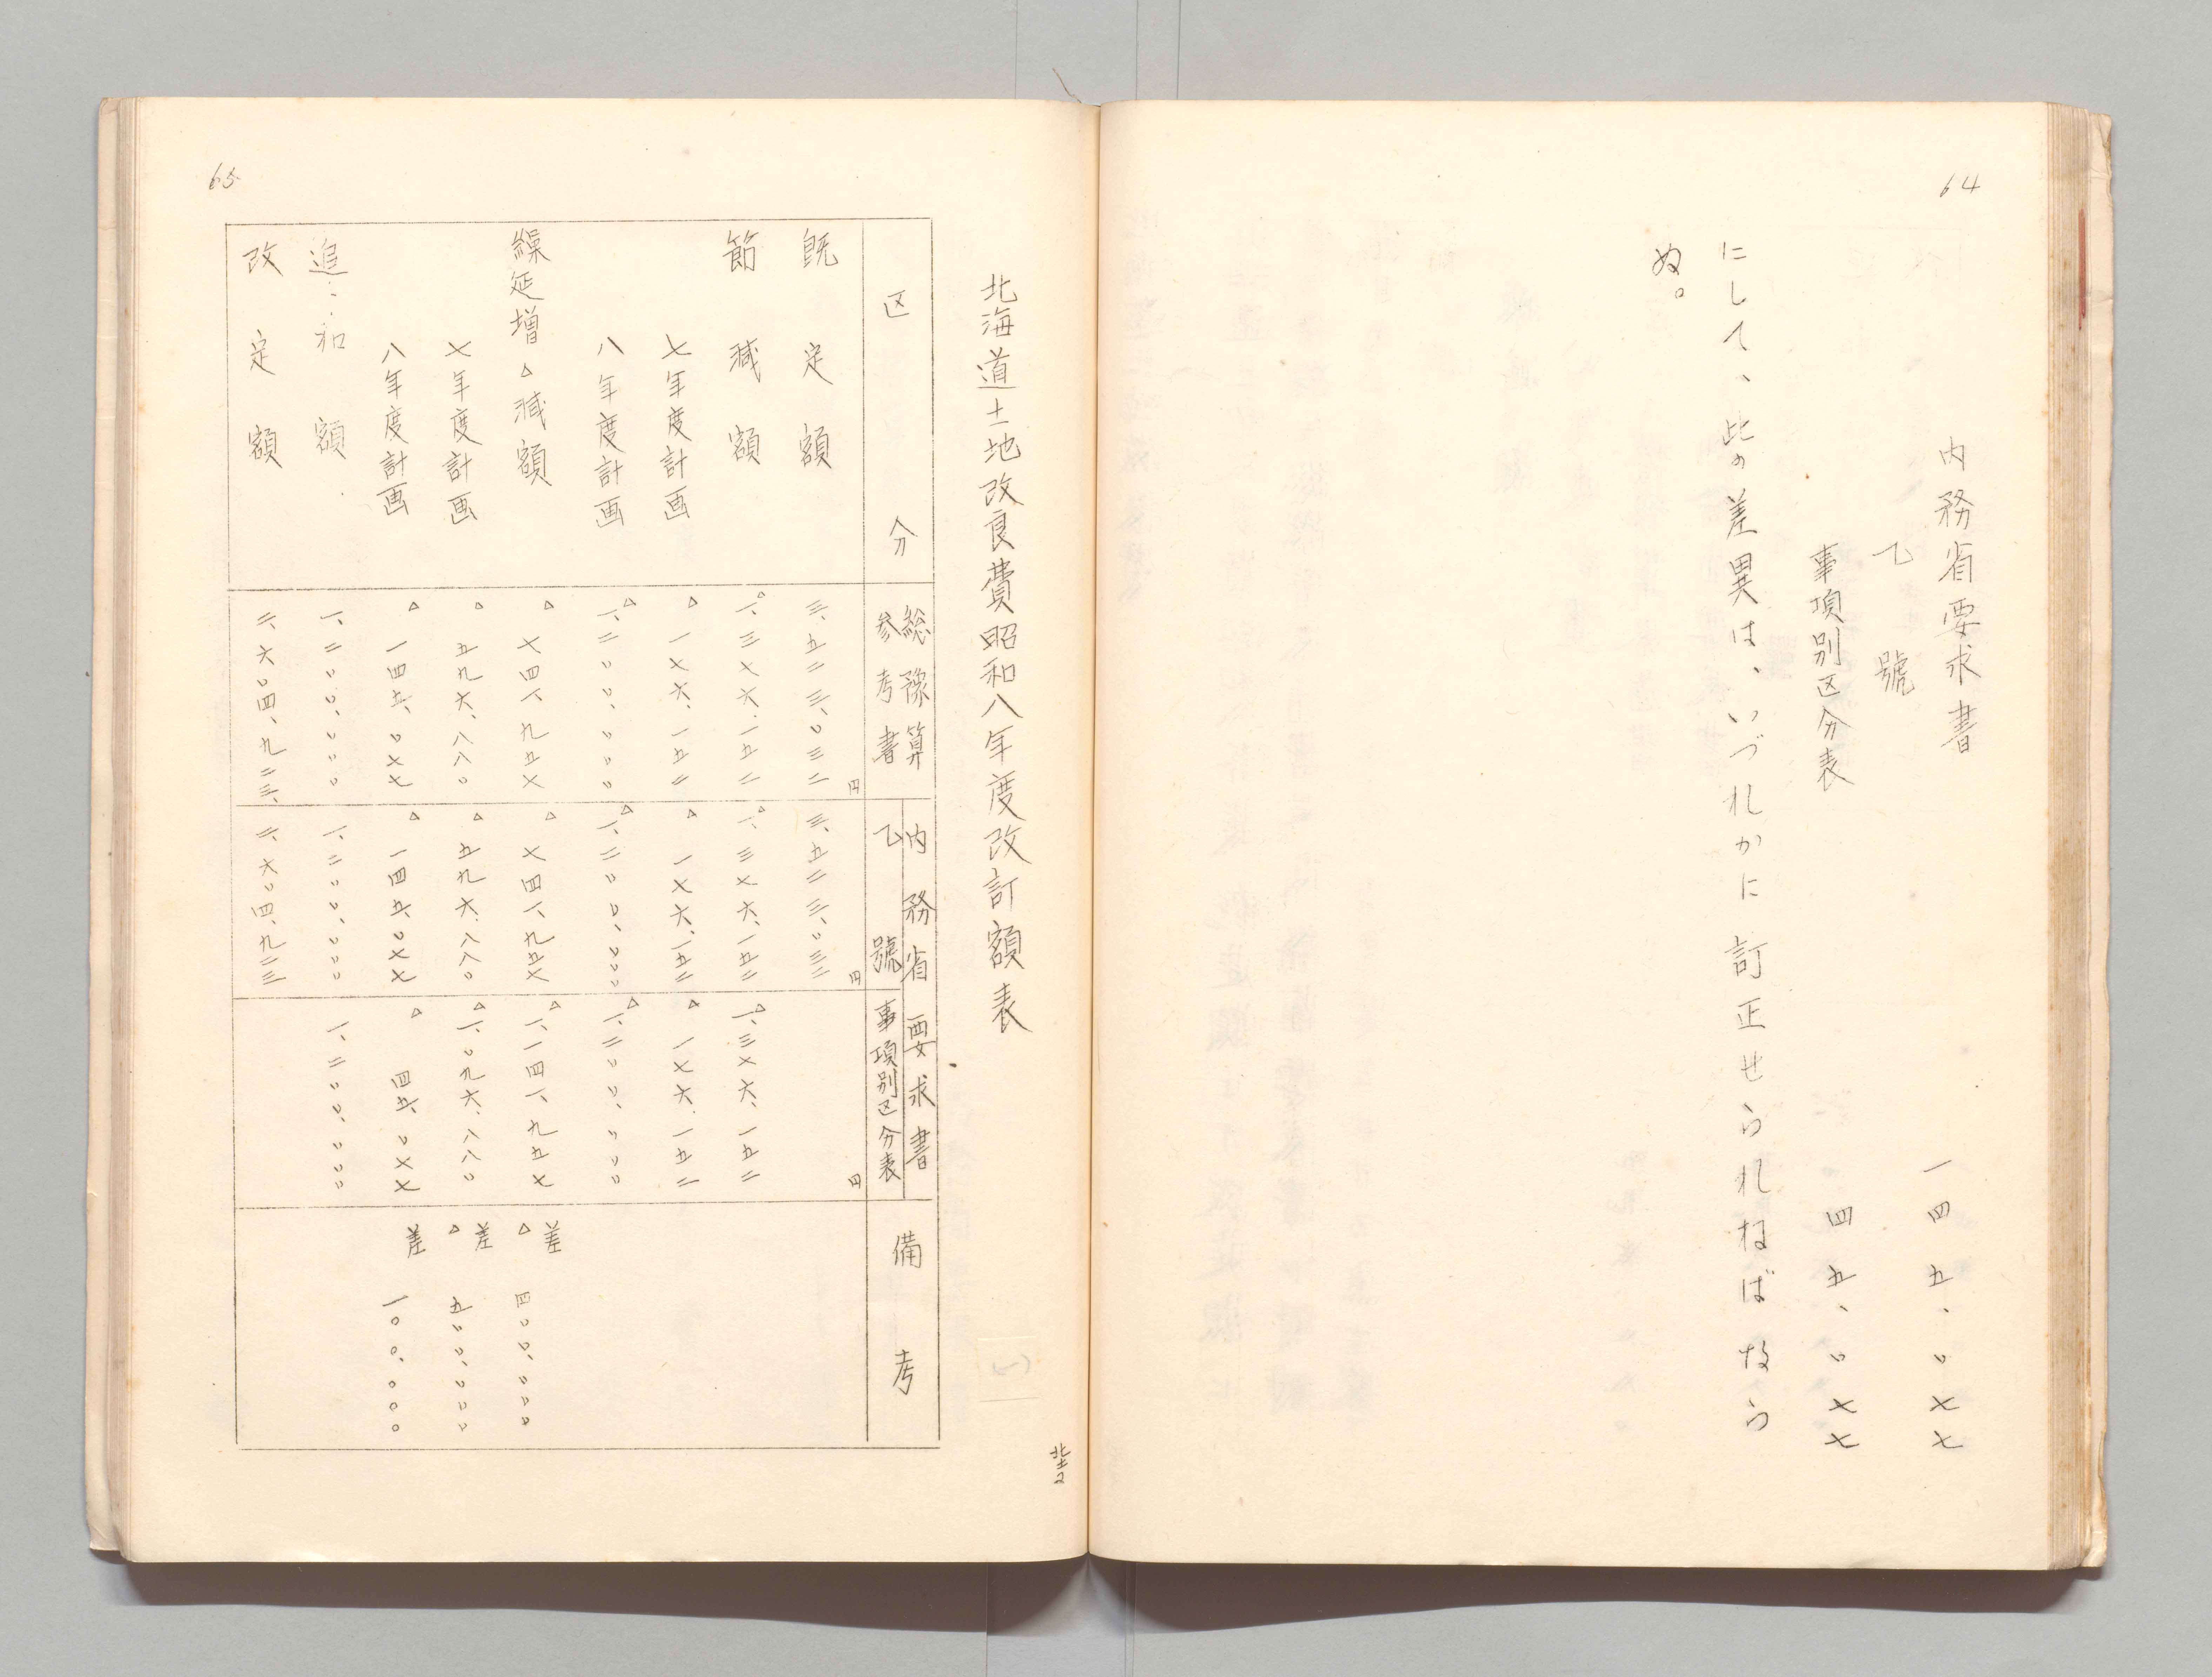 64
内務省要求書 一四五、〇七七
乙號
事項別区分表 四五、〇七七
にして、此の差異は、いづれかに訂正せられねばなら
ぬ。
北土2
北海道土地改良費昭和八年度改訂額表
区分 総豫算参考書 内務省要求書 乙號 事項別区分表 備考
円 円 円
既定額 三、五二三、〇三二 三、五二三、〇三二
節減額 △一、三七六、一五二 △一、三七六、一五二 △一、三七六、一五二
七年度計画 △一七六、一五二 △一七六、一五二 △一七六、一五二
八年度計画 △一、二〇〇、〇〇〇 △一、二〇〇、〇〇〇 △一、二〇〇、〇〇〇
繰延増△減額 △七四一、九五七 △七四一、九五七 △一、一四一、九五七 差△四〇〇、〇〇〇
七年度計画 △五九六、八八〇 △五九六、八八〇 △一、〇九六、八八〇 差△五〇〇、〇〇〇
八年度計画 △一四五、〇七七 △一四五、〇七七 △四五、〇七七 差一〇〇、〇〇〇
追和額 一、二〇〇、〇〇〇 一、二〇〇、〇〇〇 一、二〇〇、〇〇〇
改定額 二、六〇四、九二三 二、六〇四、九二三
65